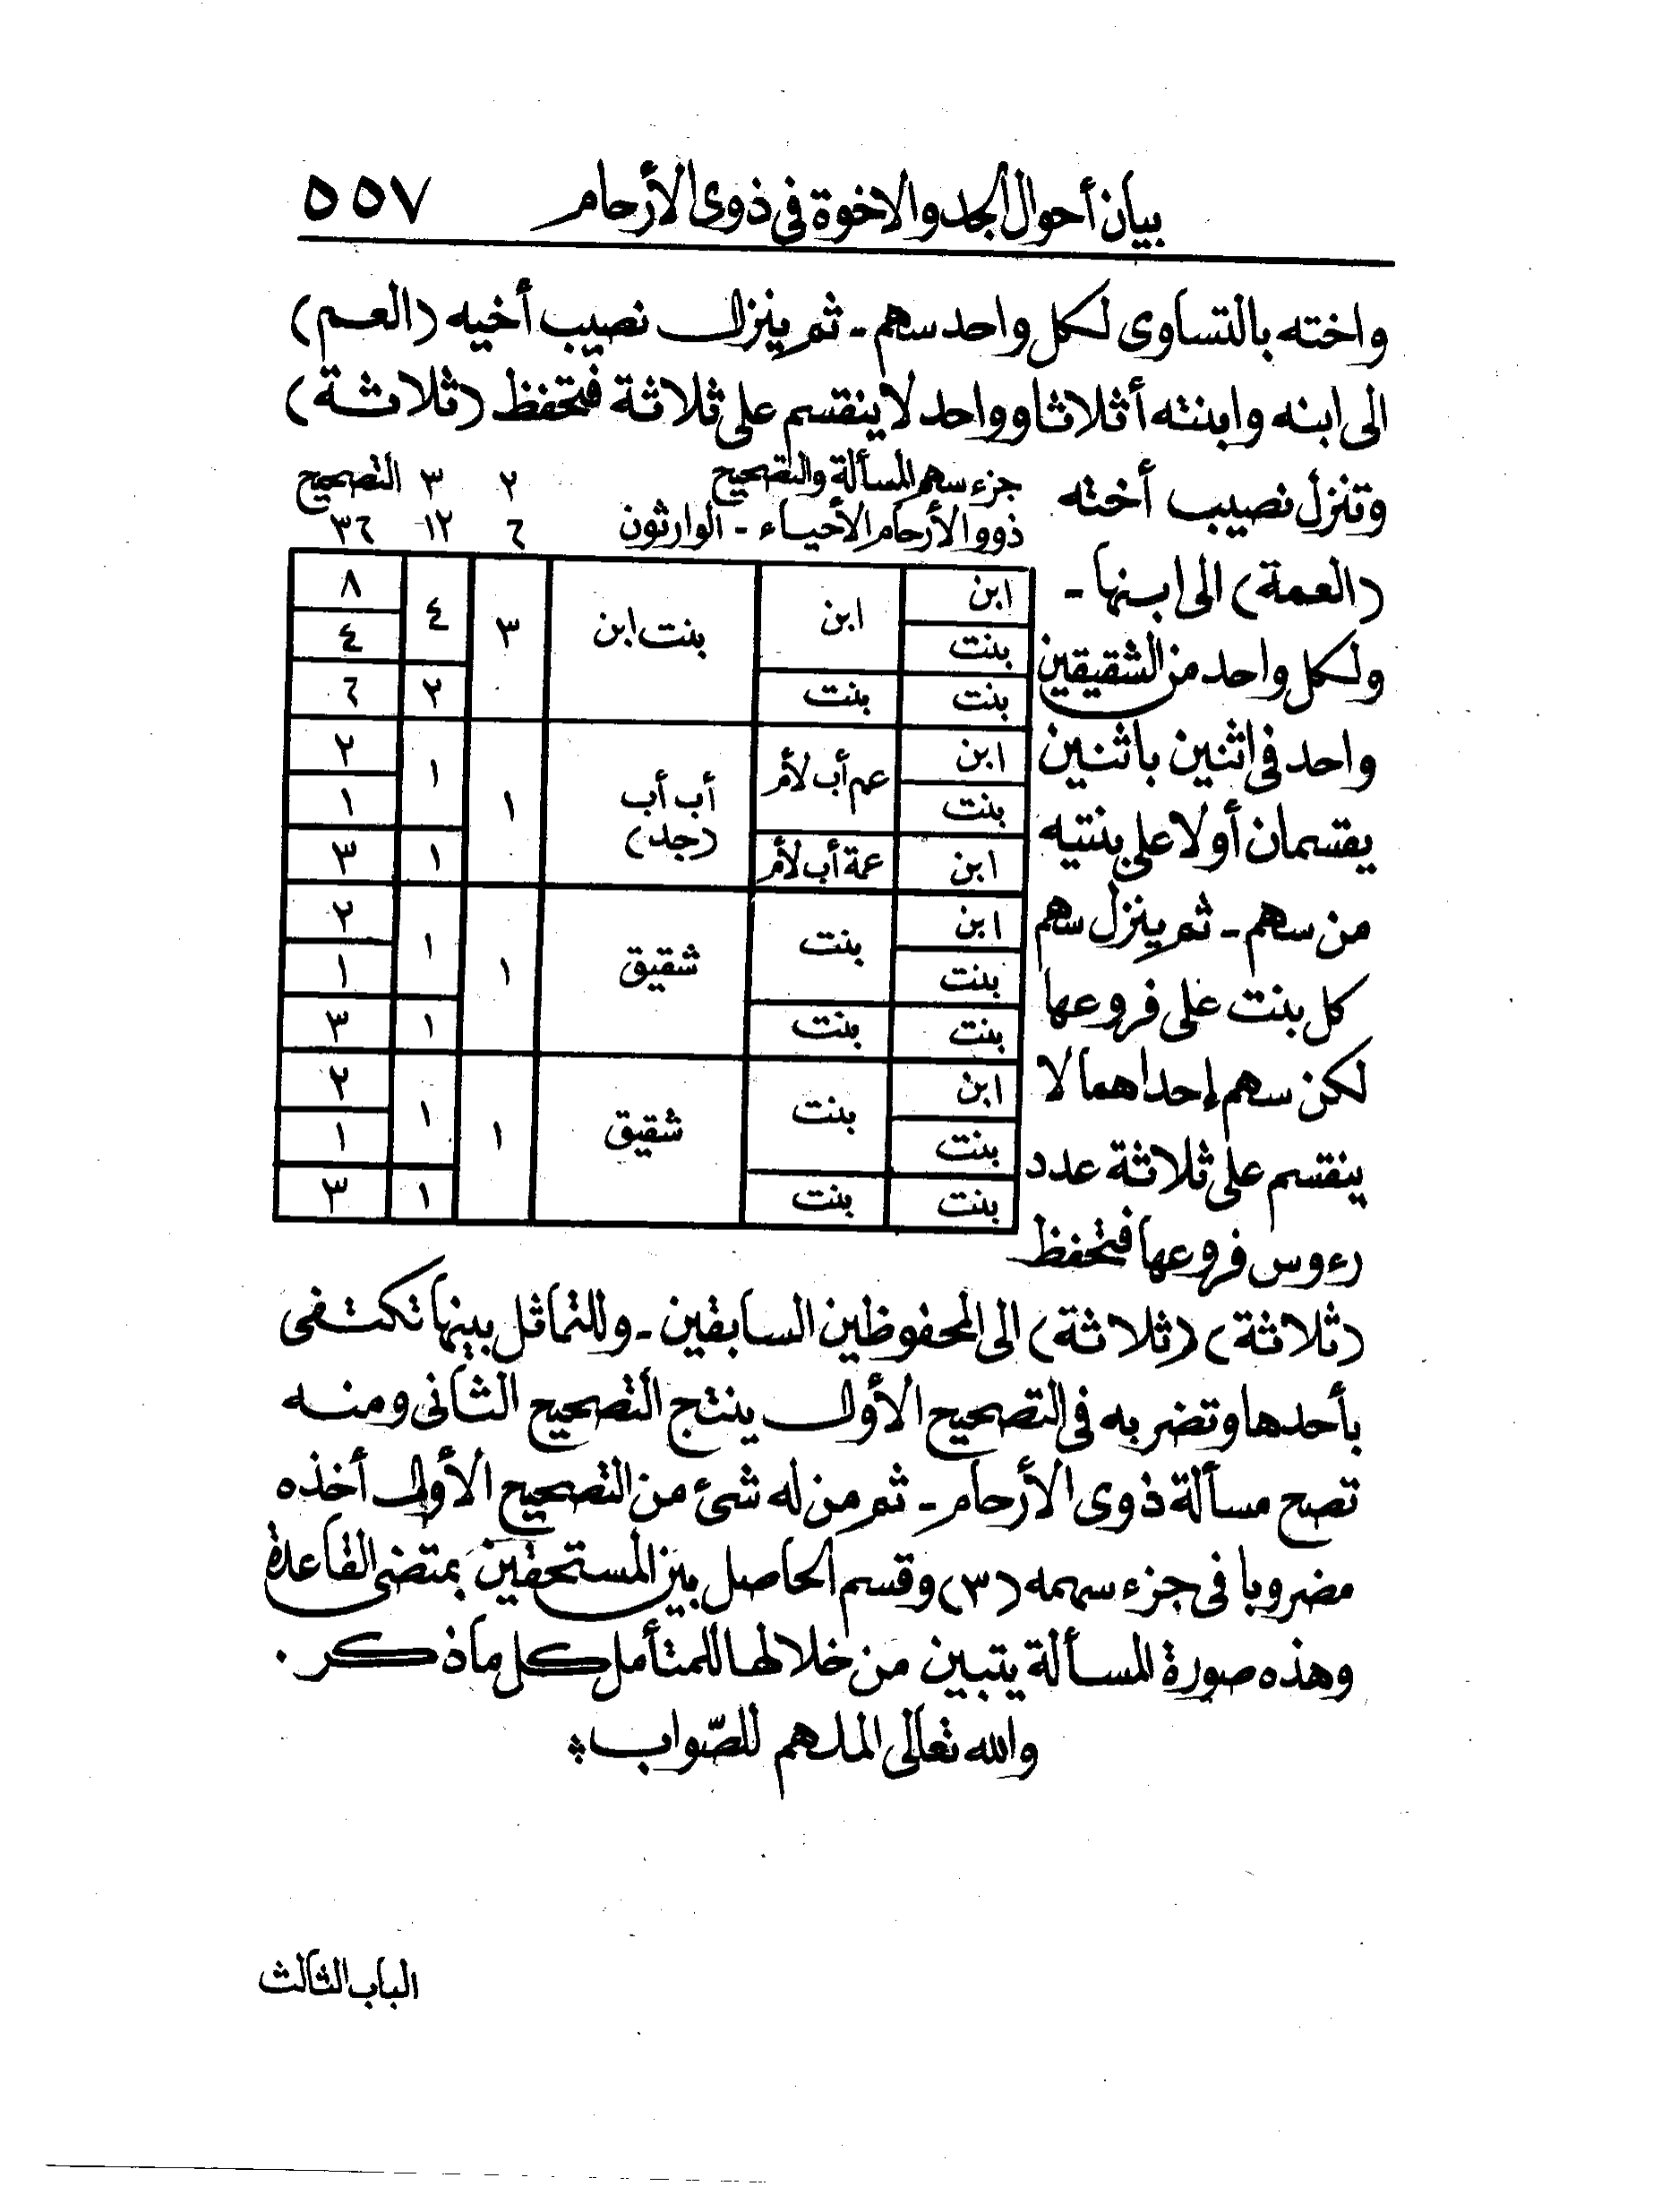 بيان أحوال الجد والاخوة فى ذوى الأرحام ٥٥٧
واخته بالتساوى لكل واحد سهم - ثم ينزل نصيب أخيه (العم)
الى ابنه وابنته أثلاثا وواحد لا ينقسم على ثلاثة فتحفظ (ثلاثة)
وتنزل نصيب أخته
(العمة) الى ابنها -
ولكل واحد من الشقيقين
واحد فى اثنين باثنين
يقسمان أولا على بنتيه
من سهم - ثم ينزل سهم
كل بنت على فروعها
لكن سهم إحداهما لا
ينقسم على ثلاثة عدد
رءوس فروعها فتحفظ
جزء سهم المسألة والتصحيح ٢ ٣ التصحيح
ذوو الأرحام الأحياء - الوارثون ٦ ١٢ ٣٦
ابن ابن بنت ابن ٣ ٤ ٨
بنت ٤
بنت بنت ٢ ٦
ابن عم أب لأم أب أب (جد) ١ ١ ٢
بنت ١
ابن عمة أب لأم ١ ٣
ابن بنت شقيق ١ ١ ٢
بنت ١
بنت بنت ١ ٣
ابن بنت شقيق ١ ١ ٢
بنت ١
بنت بنت ١ ٣
(ثلاثة) (ثلاثة) الى المحفوظين السابقين - وللتماثل بينها تكتفى
بأحدها وتضربه فى التصحيح الأول ينتج التصحيح الثانى ومنه
تصح مسألة ذوى الأرحام - ثم من له شئ من التصحيح الأول أخذه
مضروبا فى جزء سهمه (٣) وقسم الحاصل بين المستحقين بمتضى القاعدة
وهذه صورة المسألة يتبين من خلالها للمتأمل كل ما ذكر.
والله تعالى الملهم للصّواب
الباب الثالث